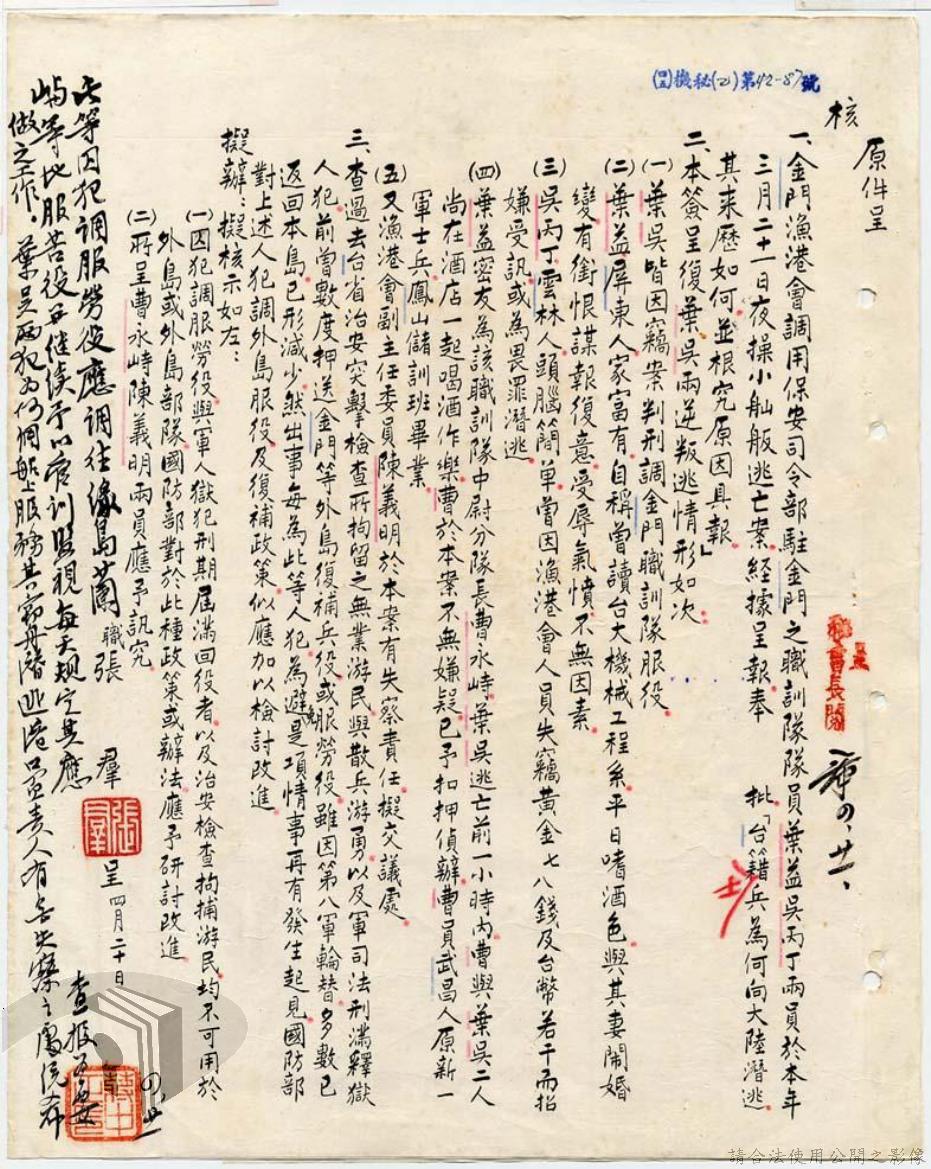 (四)機秘(乙)第42-87號
原件呈
核
一、金門漁港會調用保安司令部駐金門之職訓隊隊員葉益吳丙丁兩員於本年
三月二十一日夜操小舢舨逃亡案經據呈報奉 批「台籍兵為何向大陸潛逃
其來歷如何並根究原因具報」
二、本簽呈復葉吳兩逆叛逃情形如次
(一)葉吳皆因竊案判刑調金門職訓隊服役
(二)葉益屏東人家富有自稱曾讀台大機械工程系平日嗜酒色與其妻鬧婚
變有銜恨謀報復意受辱氣憤不無因素
(三)吳丙丁雲林人頭腦簡單曾因漁港會人員失竊黃金七八錢及台幣若干而指
嫌受訊或為畏罪潛逃
(四)葉益密友為該職訓隊中尉分隊長曹永峙葉吳逃亡前一小時內曹與葉吳二人
尚在酒店一起喝酒作樂曹於本案不無嫌疑已予扣押偵辦曹員武昌人原新一
軍士兵鳳山儲訓班畢業
(五)又漁港會副主任委員陳義明於本案有失察責任擬交議處
三、查過去台省治安突擊檢查所拘留之無業游民與散兵游勇以及軍司法刑滿釋獄
人犯前曾數度押送金門等外島復補兵役或服勞役雖因第八軍輪替多數已
返回本島已形減少然出事每為此等人犯為避免是項情事再有發生起見國防部
對上述人犯調外島服役及復補政策似應加以檢討改進
擬辦:擬核示如左:
(一)囚犯調服勞役與軍人獄犯刑期屆滿回役者以及治安檢查拘捕游民均不可用於
外島或外島部隊國防部對於此種政策或辦法應予研討改進
(二)所呈曹永峙陳義明兩員應予訊究
職張 羣 呈 四月二十日
張羣
呈
秘書長閱
四、廿一、
此等囚犯調服勞役應調往綠島蘭
嶼等地服苦役并繼續予以管訓監視每天規定其應
做之工作。葉吳兩犯為何個船上服務其竊舟潛逃港口負責人有無失察之處統希
查報為要
請合法使用公開之影像